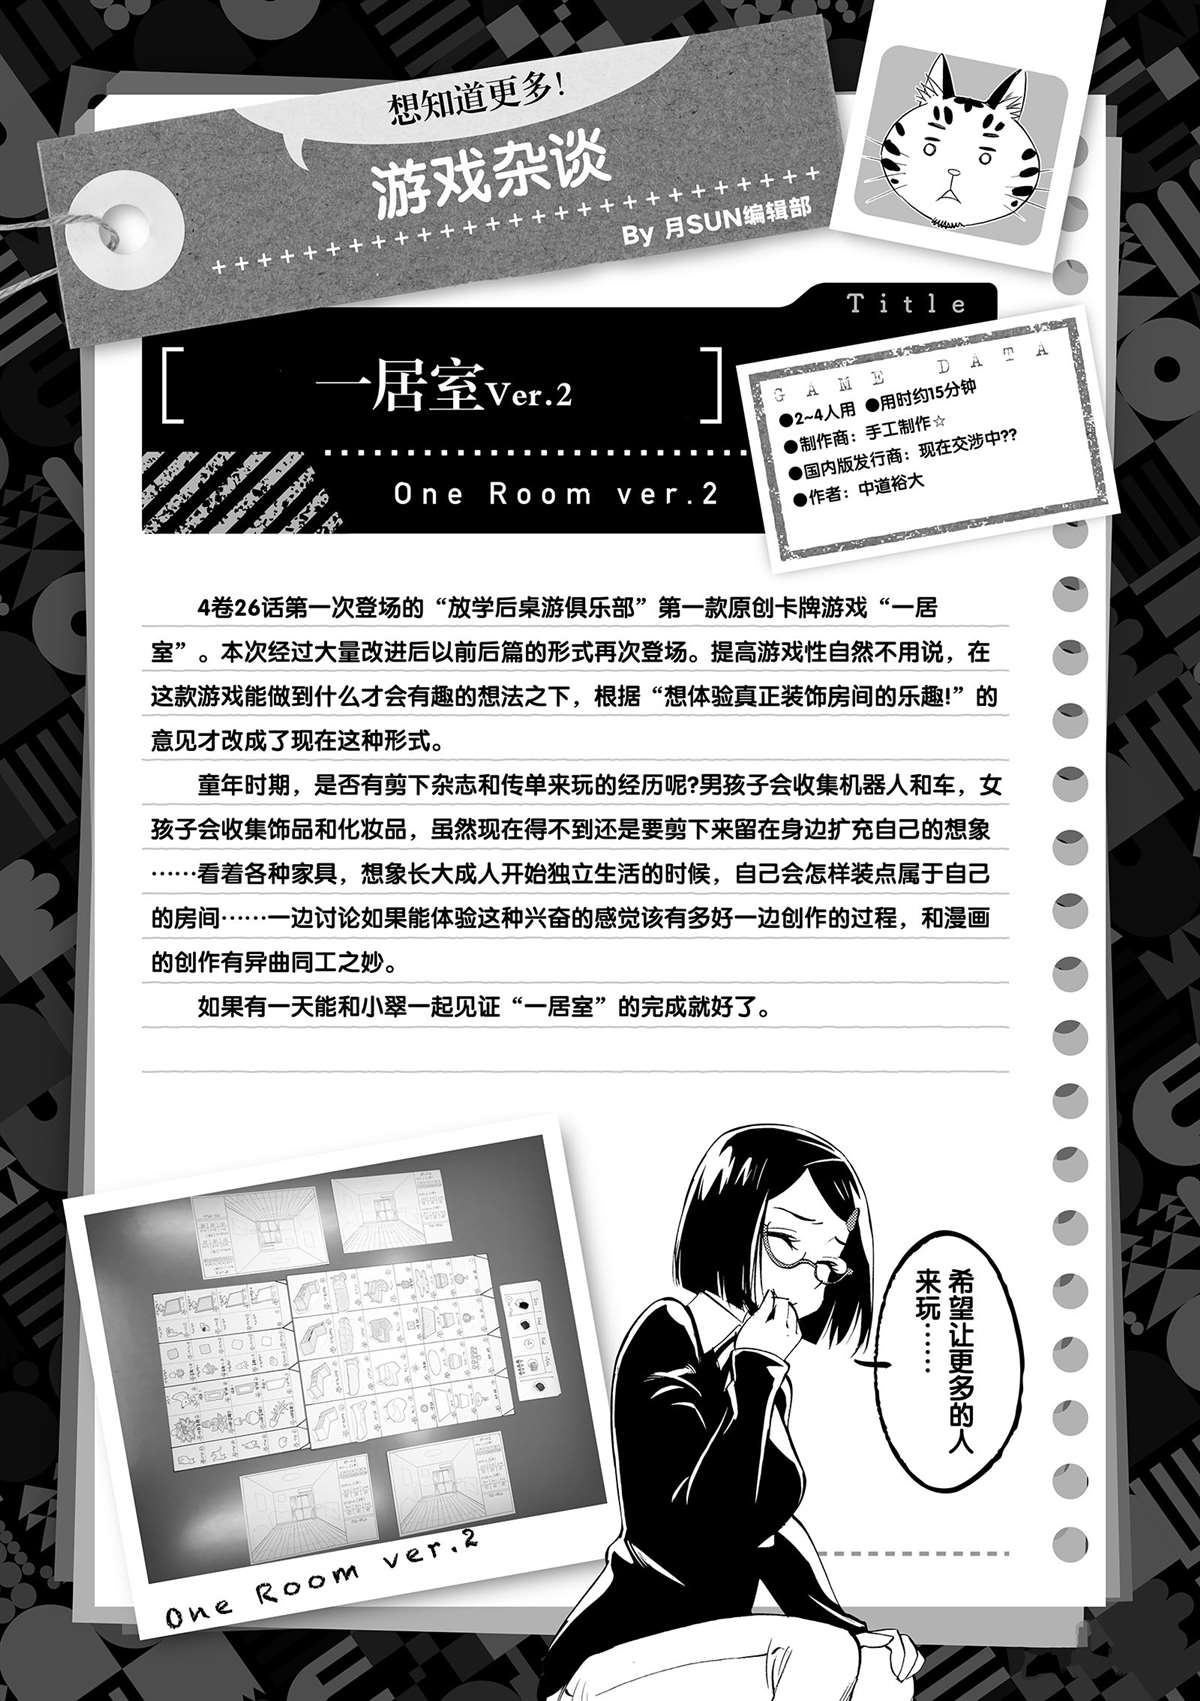 想知道更多！
游戏杂谈
By 月SUN编辑部
Title
一居室Ver.2
One Room ver.2
GAME DATA
●2~4人用 ●用时约15分钟
●制作商：手工制作☆
●国内版发行商：现在交涉中??
●作者：中道裕大
4卷26话第一次登场的“放学后桌游俱乐部”第一款原创卡牌游戏“一居
室”。本次经过大量改进后以前后篇的形式再次登场。提高游戏性自然不用说，在
这款游戏能做到什么才会有趣的想法之下，根据“想体验真正装饰房间的乐趣!”的
意见才改成了现在这种形式。
童年时期，是否有剪下杂志和传单来玩的经历呢?男孩子会收集机器人和车，女
孩子会收集饰品和化妆品，虽然现在得不到还是要剪下来留在身边扩充自己的想象
……看着各种家具，想象长大成人开始独立生活的时候，自己会怎样装点属于自己
的房间……一边讨论如果能体验这种兴奋的感觉该有多好一边创作的过程，和漫画
的创作有异曲同工之妙。
如果有一天能和小翠一起见证“一居室”的完成就好了。
希望让更多的人
来玩……
One Room ver.2